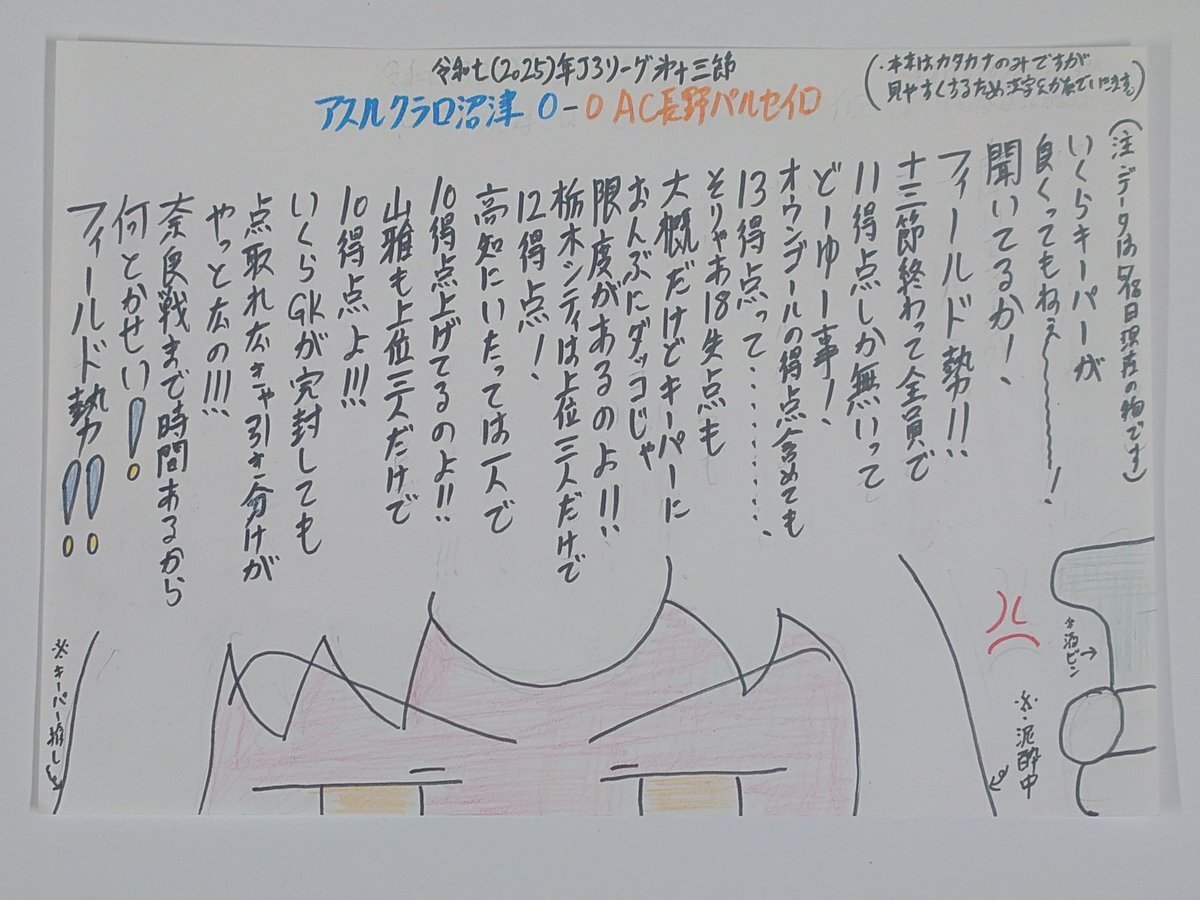 令和七(2025)年J3リーグ第十三節
アスルクラロ沼津 0-0 AC長野パルセイロ
(本来はカタカナのみですが
見やすくするため漢字も
(注:データは
日現在の物です)
いくらキーパーが
良くってもねぇ〜〜〜!
聞いてるか!
フィールド勢!!
十三節終わって全員で
11得点しか無いって
どーゆー事!
オウンゴールの得点含めても
13得点って……….
そりゃあ18失点も
大概だけどキーパーに
おんぶにダッコじゃ
限度があるのよ!!
栃木シティは上位三人だけで
12得点!
高知にいたっては一人で
10得点上げてるのよ!!
山雅も上位三人だけで
10得点よ!!!
いくらGKが完封しても
点取れなきゃ引き分けが
やっとなの!!!
奈良戦まで時間あるから
何とかせい!
フィールド勢!!
*酒ビン→
※泥酔中
※キーパー推し